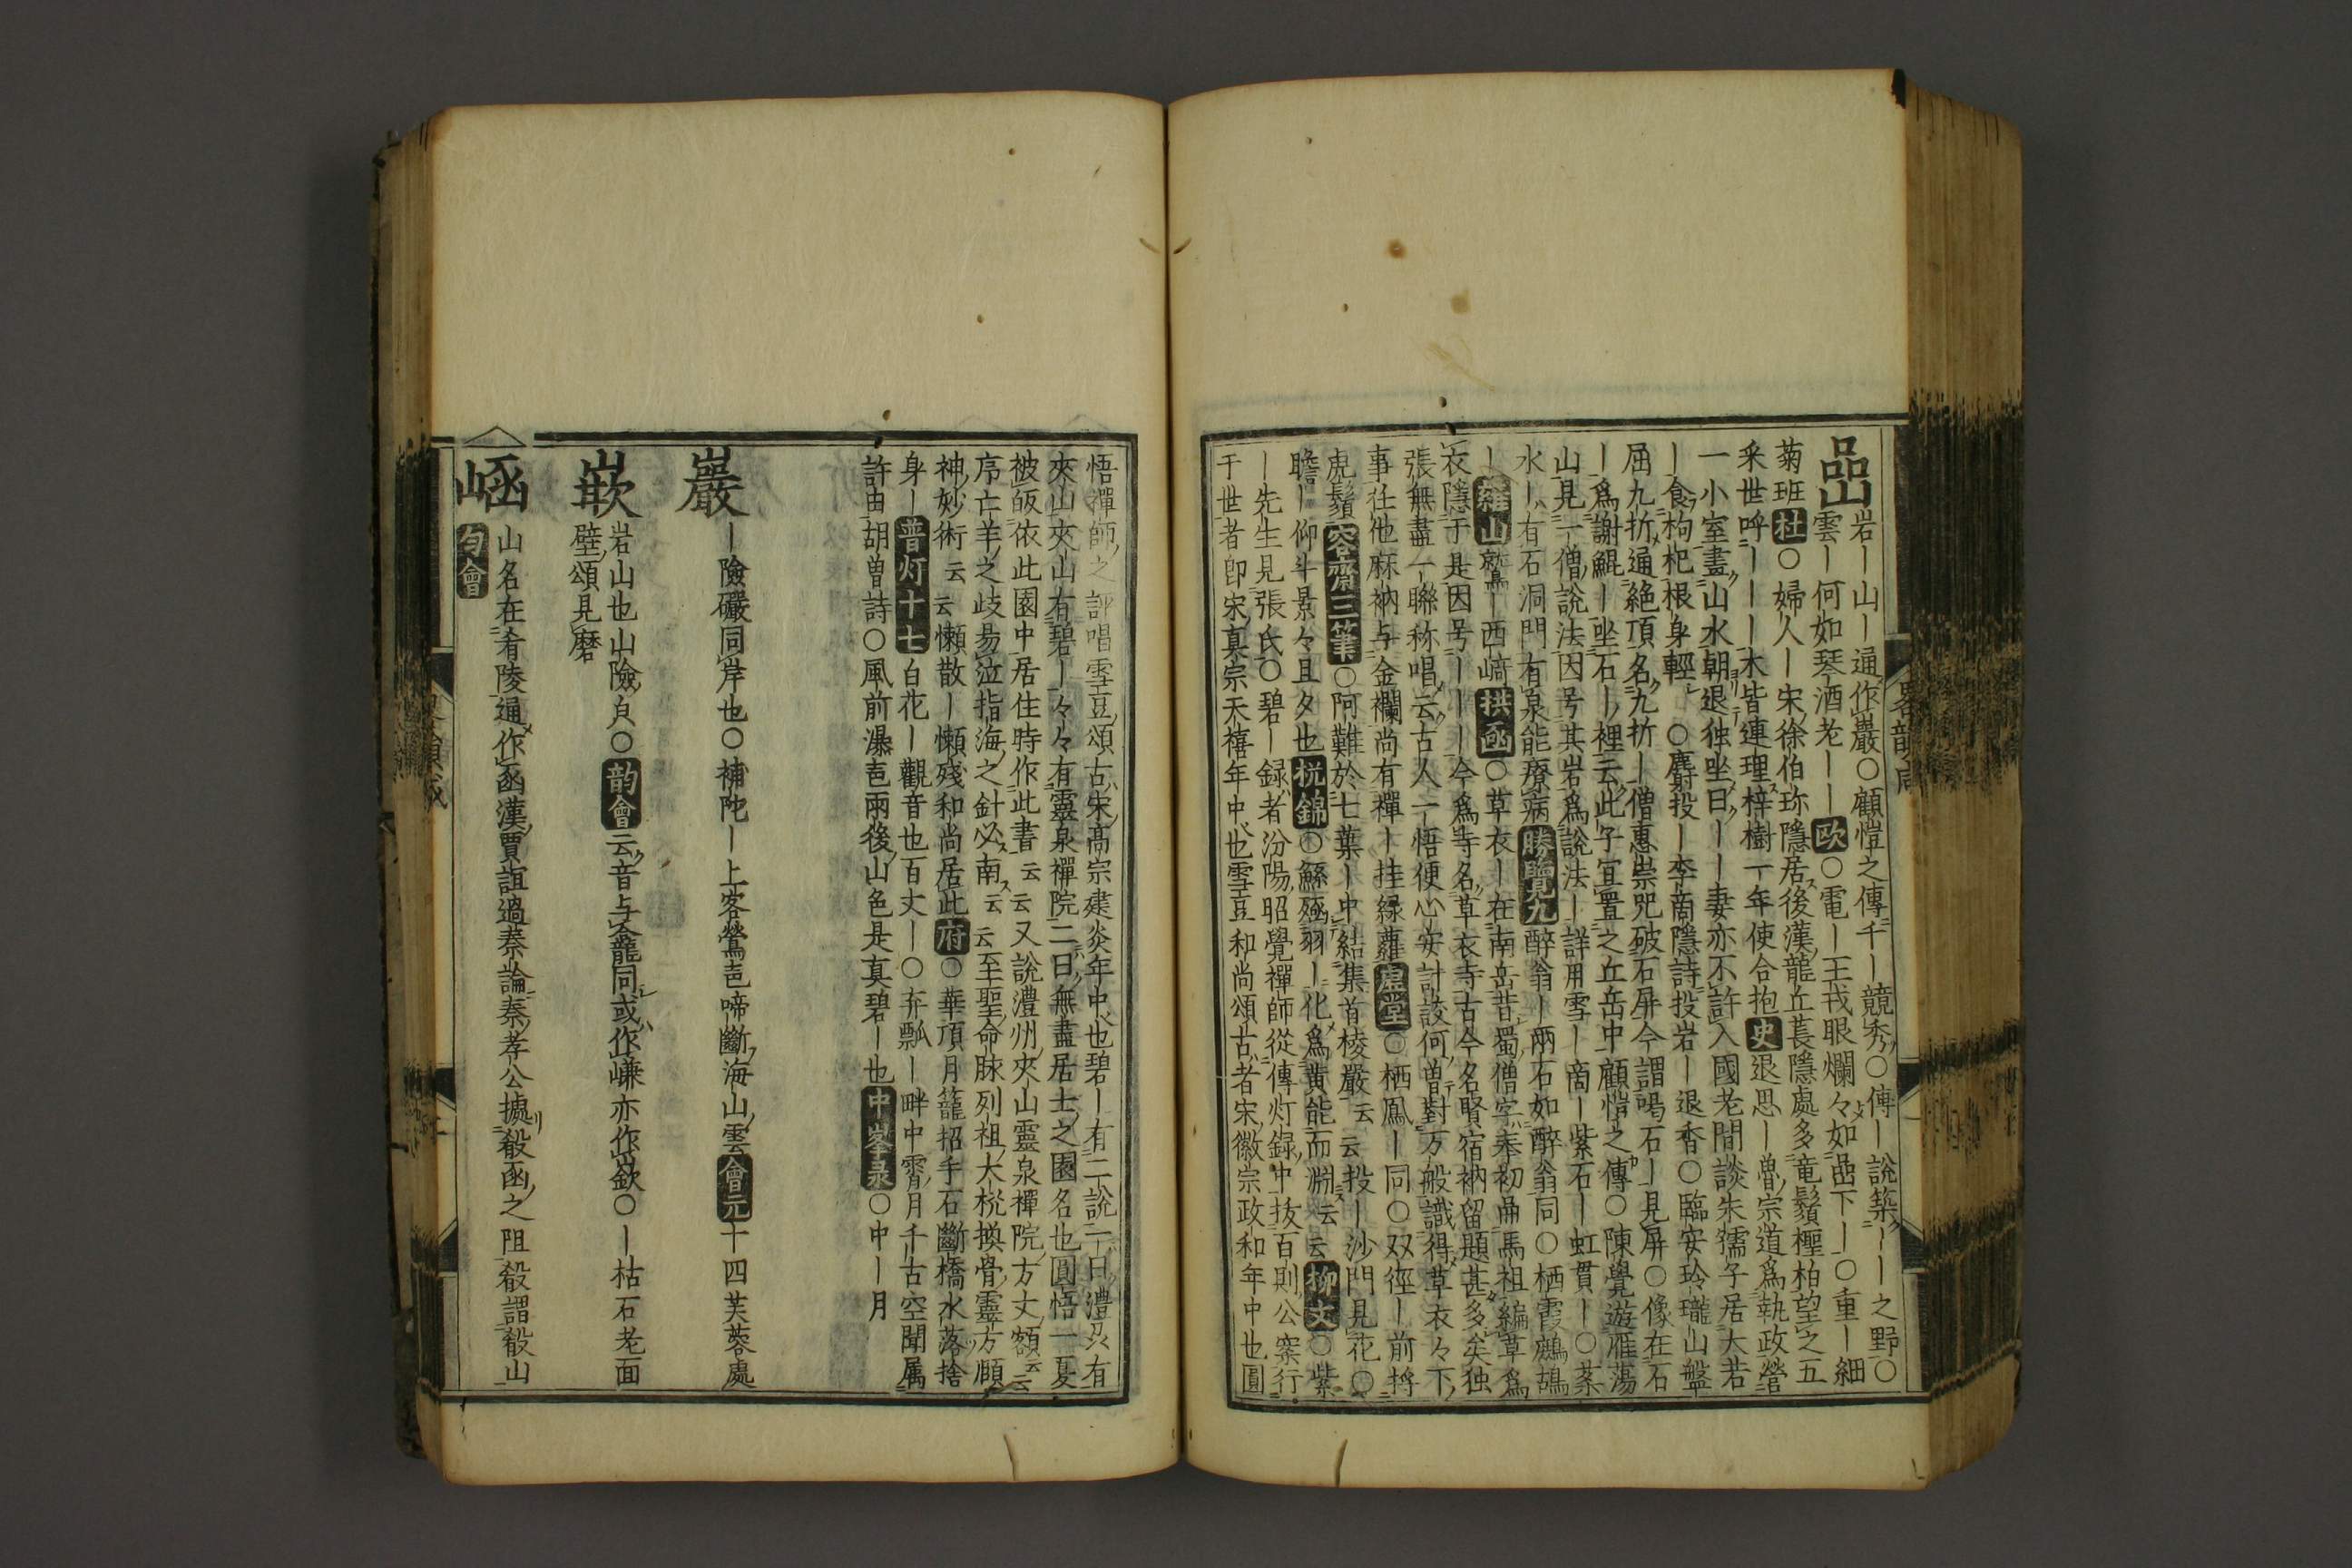 嵒
岩ー山ー通作巖○顧愷之傳千ー競秀○傳ー說築ーー之野○
雲ー何如琴酒老ーー歐○電ー王戎眼爛々如嵒下ー○重ー細
菊班杜○婦人ー宋徐伯珍隱居後漢龍丘萇隱處多竜鬚檉柏望之五
采世呼ーーー木皆連理梓樹一年使合抱史退思ー曽宗道爲執政營
一小室畫山水朝退独坐曰ーー妻亦不許入國老閒談朱孺子居大若
ー食枸杞根身輕○麝投ー李商隱詩投岩ー退香○臨安玲瓏山盤
屈九折通絶頂名九折ー僧惠崇咒破石屏今謂喝石ー見屏○像在石
ー爲謝鯤ー坐石ー裡云此子宜置之丘岳中顧愷之傳○陳覺遊雁蕩
山見一僧說法因号其岩爲說法ー詳用雪ー商ー紫石ー虹貫ー○蘂
水ー有石洞門有泉能療病勝覽九醉翁ー兩石如醉翁同○栖霞鷓鴣
ー羅山鷲ー西崎拱函○草衣ー在南岳昔蜀僧字奉初冊馬祖編草爲
衣隱于是因号ーーー今爲寺名草衣寺古今名賢宿衲留題甚多矣独
張無盡一聯称唱云古人一悟便心安計設何曽對万般識得草衣々下
事任他麻衲与金襴尚有禪ー挂緑蘿虚堂○栖鳳ー同○双徑ー前捋
虎鬚容齋三筆○阿難於七葉ー中結集首楞嚴云云投ー沙門見花○
瞻ー仰斗景々且夕也梡錦○鯀殛羽ー化爲黄能而淵云云柳文○紫
ー先生見張氏○碧ー録者汾陽昭覺禪師從傳灯録中抜百則公案行
于世者即宋真宗天禧年中也雪豆和尚頌古者宋徽宗政和年中也圓
悟禪師之評唱雪豆頌古宋髙宗建炎年中也碧ー有二說一曰澧州有
夾山夾山有碧ー々々有靈泉禪院二曰無盡居士之園名也圓悟一夏
被皈依此園中居住時作此書云云又說澧州夾山靈泉禪院方丈額云云
序亡羊之歧易泣指海之針必南云云至聖命脉列祖大梡換骨靈方頤
神妙術云云懶散ー懶殘和尚居此府○華頂月籠招手石斷橋水落捨
身ー普灯十七白花ー觀音也百丈ー○弃瓢ー畔中霄月千古空聞属
許由胡曽詩○風前瀑㐂雨後山色是真碧ー也中峯录○中ー月
巖
ー險礹同岸也○補陀ー上客鶯㐂啼斷海山雲會元十四芙蓉處
嶔
岩山也山險皃○韵會云音与龕同或作嵰亦作嶔○ー枯石老面
壁頌見磨
崡
山名在肴陵通作函漢賈誼過秦論秦孝公據殽函之阻殽謂殽山
勻會